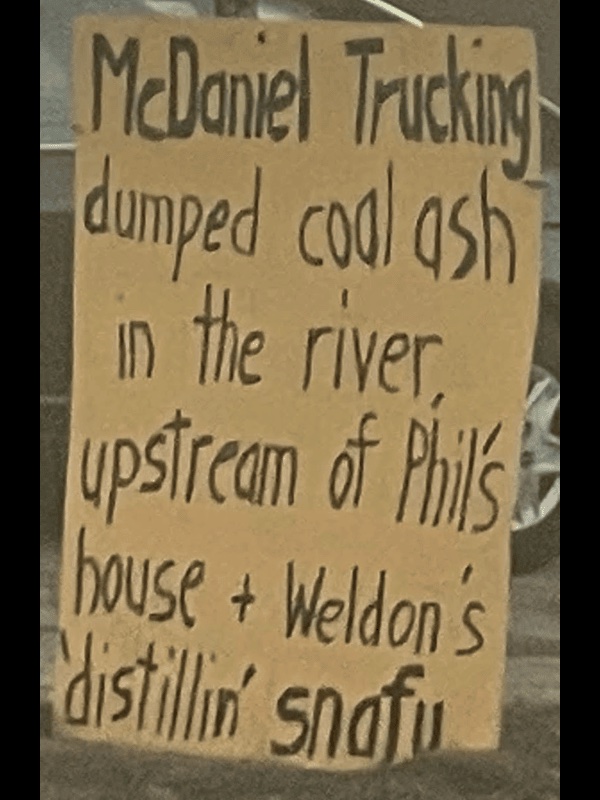 McDaniel Trucking
dumped coal ash
in the river,
upstream of Phil's
house + Weldon's
'distillin' snafu